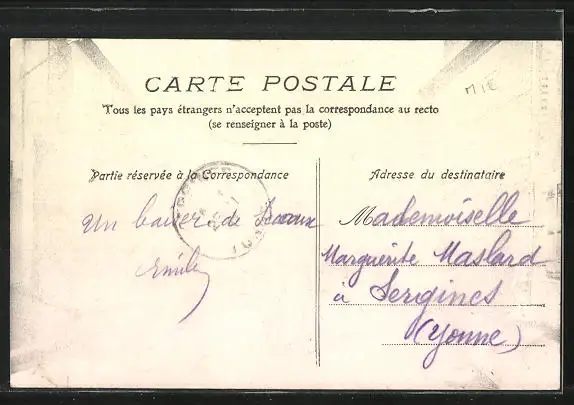 CARTE POSTALE
Tous les pays étrangers n'acceptent pas la correspondance au recto
(se renseigner à la poste)
Partie réservée à la Correspondance
Un baiser de
Emile
Adresse du destinataire
Mademoiselle
Marguerite Maslard
à Sergines
(Yonne)